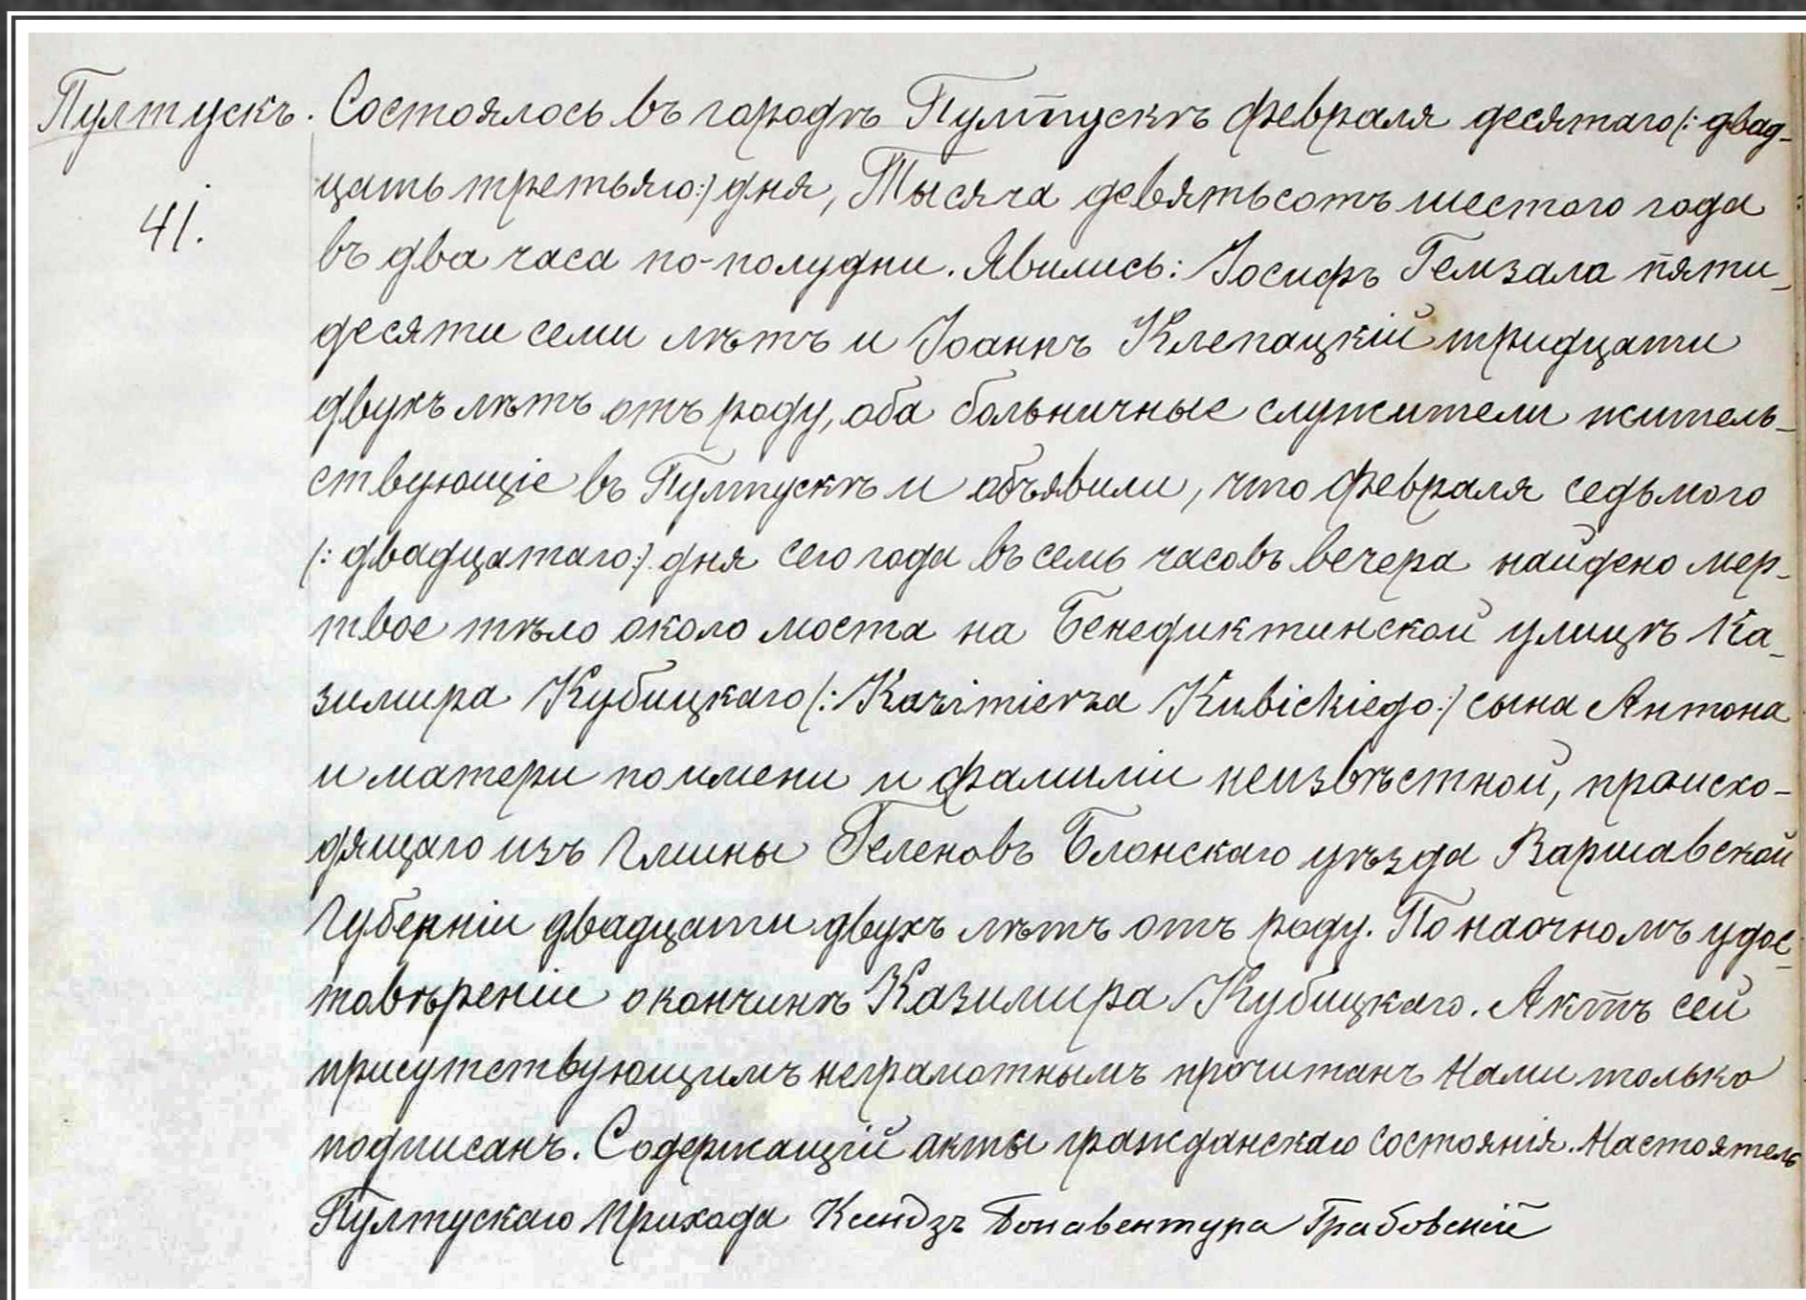 Пултускъ. Состоялось въ городѣ Пултускѣ февраля десятаго (: двад-
41. цать третьяго:) дня, Тысяча девятьсотъ шестого года
въ два часа по-полудни. Явились: Іосифъ Гемзала пяти-
десяти семи лѣтъ и Іоаннъ Клепацкій тридцати
двухъ лѣтъ отъ роду, оба больничные служители житель-
ствующіе въ Пултускѣ и объявили, что февраля седьмого
(: двадцатаго:) дня сего года въ семь часовъ вечера найдено мер-
твое тѣло около моста на Бенедиктинской улицѣ Ка-
зимира Кубицкаго (: Kazimierza Kubickiego:) сына Антона
и матери по имени и фамиліи неизвѣстной, происхо-
дящаго изъ Гмины Геленовъ Блонскаго уѣзда Варшавской
Губерніи двадцати двухъ лѣтъ отъ роду. По наочномъ удос-
товѣреніи о кончинѣ Казимира Кубицкаго. Актъ сей
присутствующимъ неграмотнымъ прочитанъ Нами только
подписанъ. Содержащій акты гражданскаго состоянія. Настоятель
Пултускаго Прихода Ксендзъ Бонавентура Грабовскій